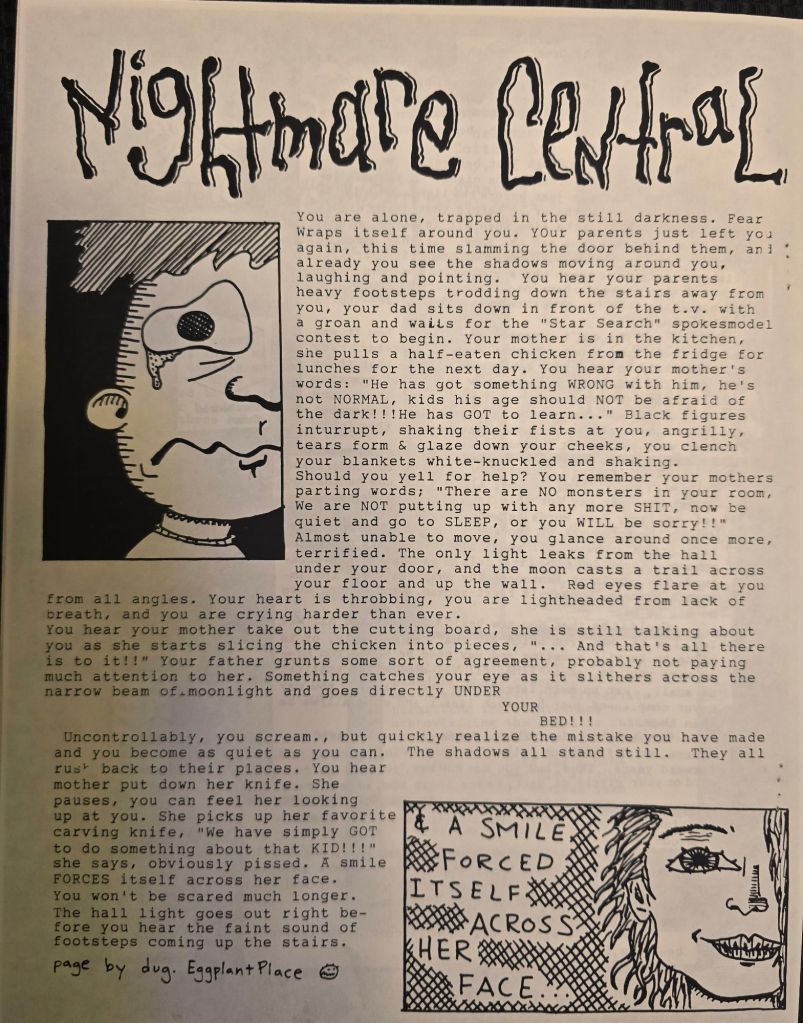 Nightmare Central
You are alone, trapped in the still darkness. Fear
Wraps itself around you. YOur parents just left you
again, this time slamming the door behind them, and
already you see the shadows moving around you,
laughing and pointing. You hear your parents
heavy footsteps trodding down the stairs away from
you, your dad sits down in front of the t.v. with
a groan and waits for the "Star Search" spokesmodel
contest to begin. Your mother is in the kitchen,
she pulls a half-eaten chicken from the fridge for
lunches for the next day. You hear your mother's
words: "He has got something WRONG with him, he's
not NORMAL, kids his age should NOT be afraid of
the dark!!!He has GOT to learn..." Black figures
inturrupt, shaking their fists at you, angrilly,
tears form & glaze down your cheeks, you clench
your blankets white-knuckled and shaking.
Should you yell for help? You remember your mothers
parting words; "There are NO monsters in your room,
We are NOT putting up with any more SHIT, now be
quiet and go to SLEEP, or you WILL be sorry!!"
Almost unable to move, you glance around once more,
terrified. The only light leaks from the hall
under your door, and the moon casts a trail across
your floor and up the wall. Red eyes flare at you
from all angles. Your heart is throbbing, you are lightheaded from lack of
breath, and you are crying harder than ever.
You hear your mother take out the cutting board, she is still talking about
you as she starts slicing the chicken into pieces, "... And that's all there
is to it!!" Your father grunts some sort of agreement, probably not paying
much attention to her. Something catches your eye as it slithers across the
narrow beam of moonlight and goes directly UNDER
YOUR
BED!!!
Uncontrollably, you scream., but quickly realize the mistake you have made
and you become as quiet as you can. The shadows all stand still. They all
rush back to their places. You hear
mother put down her knife. She
pauses, you can feel her looking
up at you. She picks up her favorite
carving knife, "We have simply GOT
to do something about that KID!!!"
she says, obviously pissed. A smile
FORCES itself across her face.
You won't be scared much longer.
The hall light goes out right be-
fore you hear the faint sound of
footsteps coming up the stairs.
page by dug. EggplantPlace
& A SMILE
FORCED
ITSELF
ACROSS
HER
FACE...